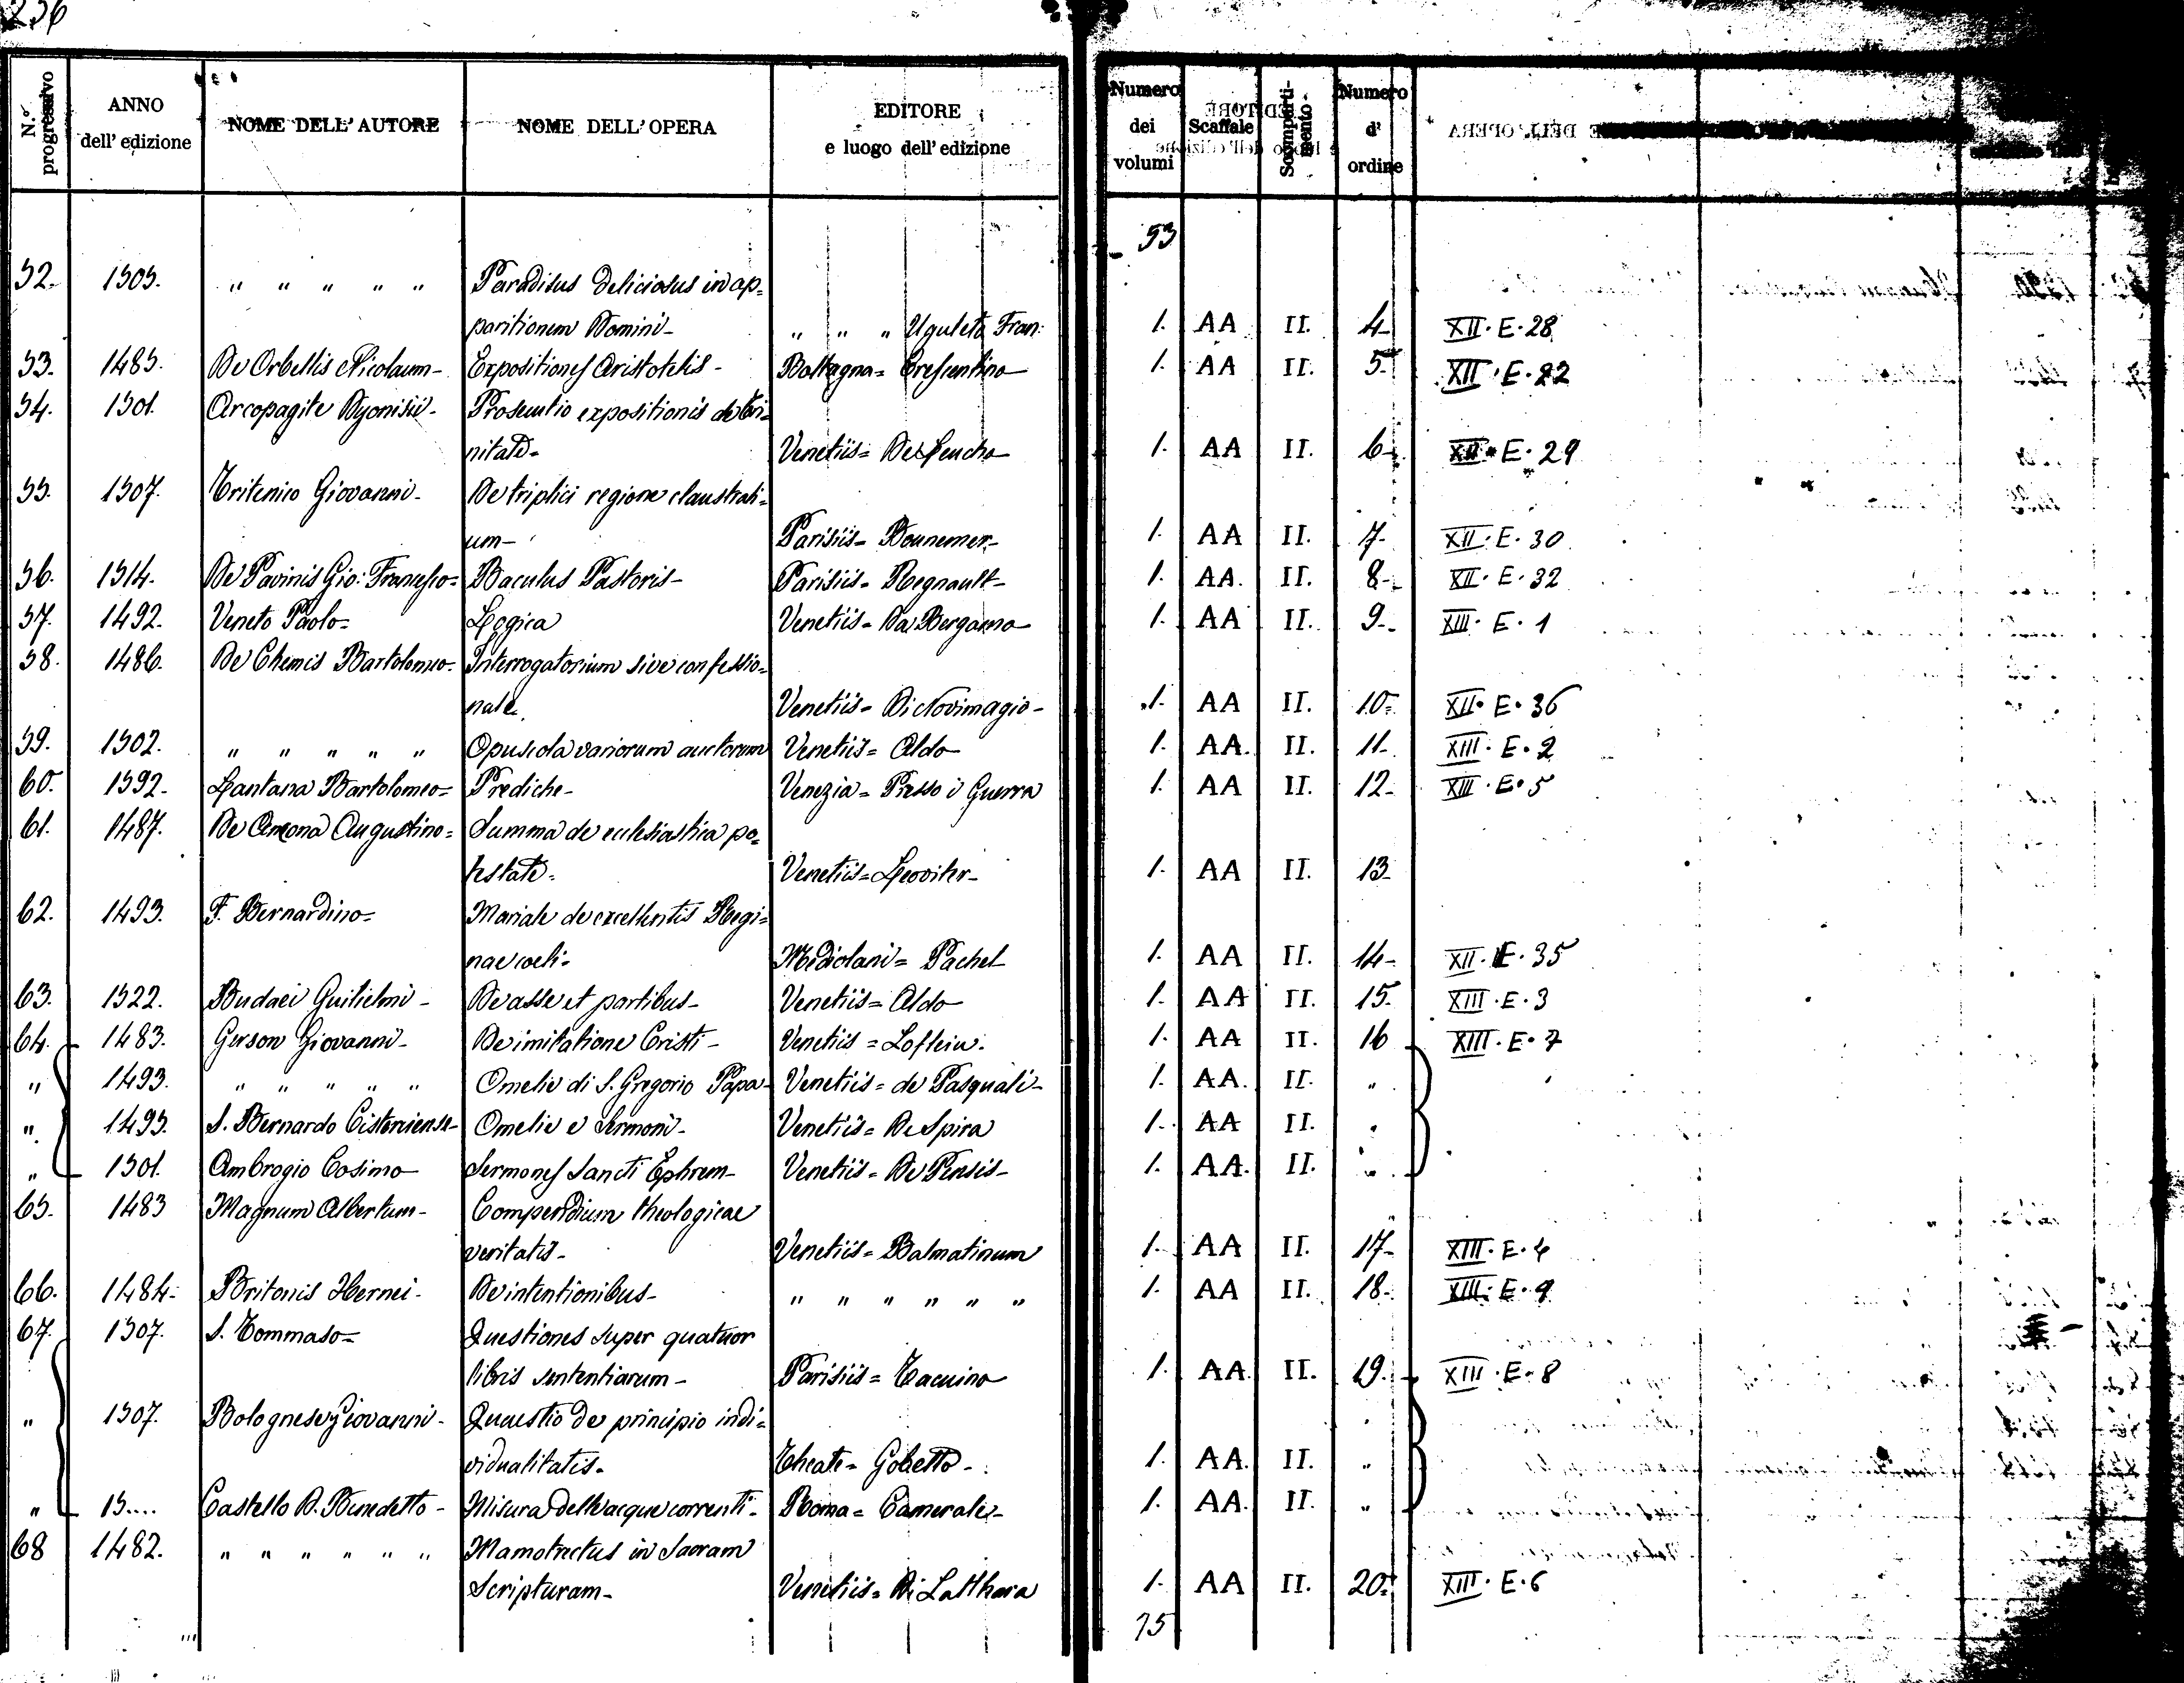 256
N.º progressivo | ANNO dell' edizione | NOME DELL' AUTORE | NOME DELL' OPERA | EDITORE e luogo dell' edizione | Numero dei volumi | Scaffale | Scomparti-mento | Numero d' ordine
53
52. 1505. " " " " " Paradisus deliciosus in ap=
paritionem Domini- " " " Uguleto Fran: 1. AA II. 4- XII. E. 28
53. 1485. De Orbellis Nicolaum- Expositiones Aristotelis- 1. AA II. 5. XII. E. 22
54. 1501. Areopagite Dyonisii- expositionis de tri=
nitate- Venetiis= De Leucho 1. AA II. 6- XII. E. 29
55. 1507. Giovanni- De triplici regione claustrali=
um- Parisiis- 1. AA II. 7- XII. E. 30
56. 1514. De Pavinis Gio: Francesco= Baculus Pastoris- Parisiis- Regnault- 1. AA. II. 8- XII. E. 32
57. 1492. Veneto Paolo- Logica Venetiis- Da Bergamo 1. AA II. 9- XIII. E. 1
58. 1486. De Chemis Bartolomeo- Interrogatorium sive confessio=
nale. Venetiis- 1. AA II. 10- XII. E. 36
59. 1502. " " " " " Opuscola variorum auctorum Venetiis= Aldo 1. AA. II. 11- XIII. E. 2
60. 1592- Lantana Bartolomeo= Prediche- Venezia= Presso i Guerra 1. AA II. 12- XIII. E. 5
61. 1487. De Ancona Augustino= Summa de ecclesiastica po=
testate- Venetiis= 1. AA II. 13
62. 1493. F. Bernardino= Mariale de excellentis Regi=
nae coeli- Mediolani= Pachel 1. AA II. 14- XII. E. 35
63. 1522. Budaei Guilielmi- De asse et partibus- Venetiis= Aldo 1. AA II. 15. XIII. E. 3
64. 1483. Gerson Giovanni- De imitatione Cristi- Venetiis = Loflein. 1. AA II. 16 XIII. E. 7
" 1493. " " " " " Omelie di S. Gregorio Papa- Venetiis= de Pasquali- 1. AA. II. "
" 1495. S. Bernardo Omelie e Sermoni- Venetiis= De Spira 1. AA II. "
" 1501. Ambrogio Cosimo Sermones Sancti Ephrem- Venetiis- De Pensis- 1. AA. II. "
65. 1483 Magnum Albertum- Compendium theologicae
veritatis- Venetiis= Dalmatinum 1. AA II. 17- XIII. E. 4
66. 1484- Britonis Hernei- De intentionibus- " " " " " " 1. AA II. 18- XIII. E. 9
67. 1507. S. Tommaso= Questiones super quatuor
libris sententiarum- Parisiis= Tacuino 1. AA. II. 19. XIII. E. 8
" 1507. Bolognese Giovanni- Quaestio de principio indi=
vidualitatis. Theate= Gobetto- 1. AA. II. "
" 15.... Castello D. Benedetto- Misura delle acque correnti- Roma= Camerale- 1. AA. II. "
68 1482. " " " " " " Mamotrectus in Sacram
Scripturam- Venetiis= 1. AA II. 20. XIII. E. 6
75